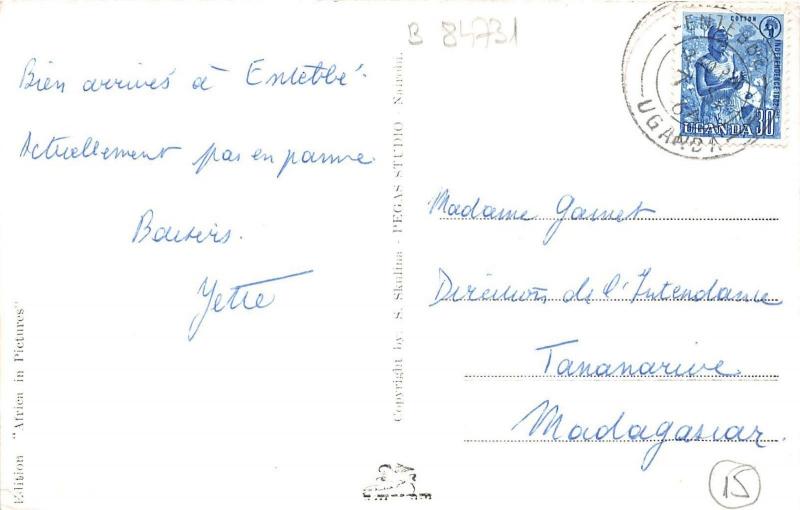 B 84731
COTTON
INDEPENDENCE 1962
UGANDA 30c
ENTEBBE
UGANDA
Bien arrivés à Entebbé.
Actuellement pas en panne
Baisers.
Yette
Madame Garnet
Direction de l'Intendance
Tananarive
Madagascar.
15
Edition "Africa in Pictures"
Copyright by: S. Skulina - PEGAS STUDIO Nairobi.